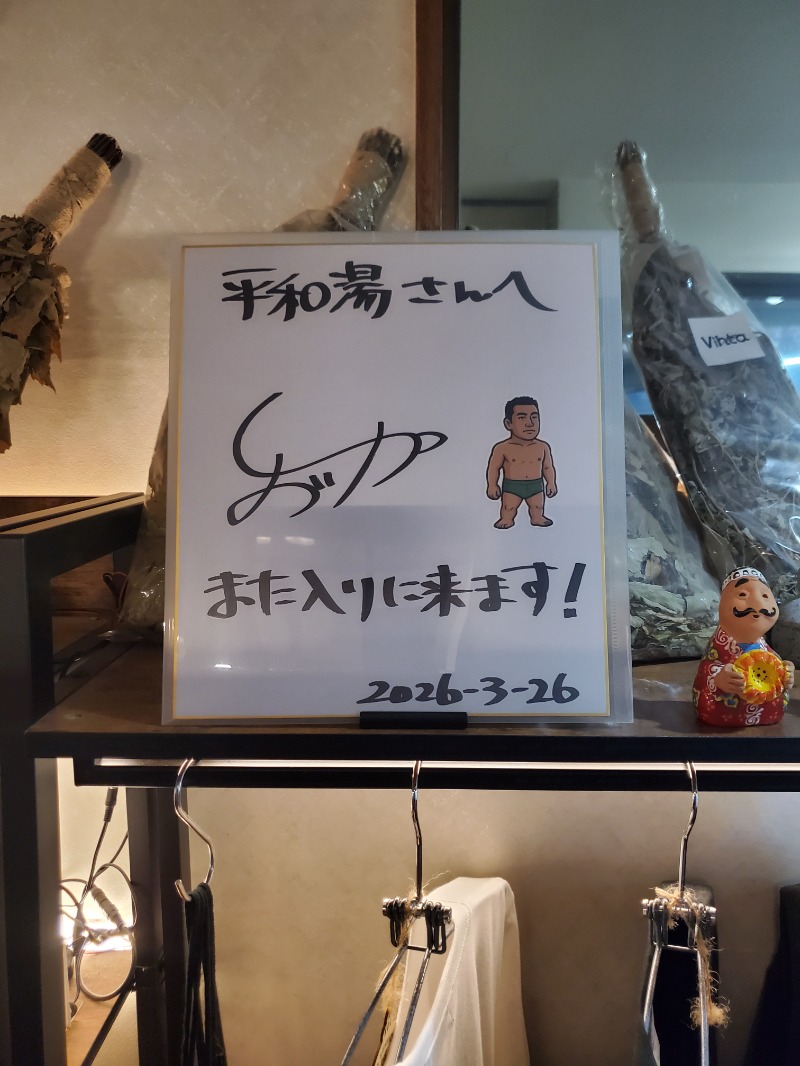 平和湯さんへ
また入りに来ます!
2026-3-26
Vihta